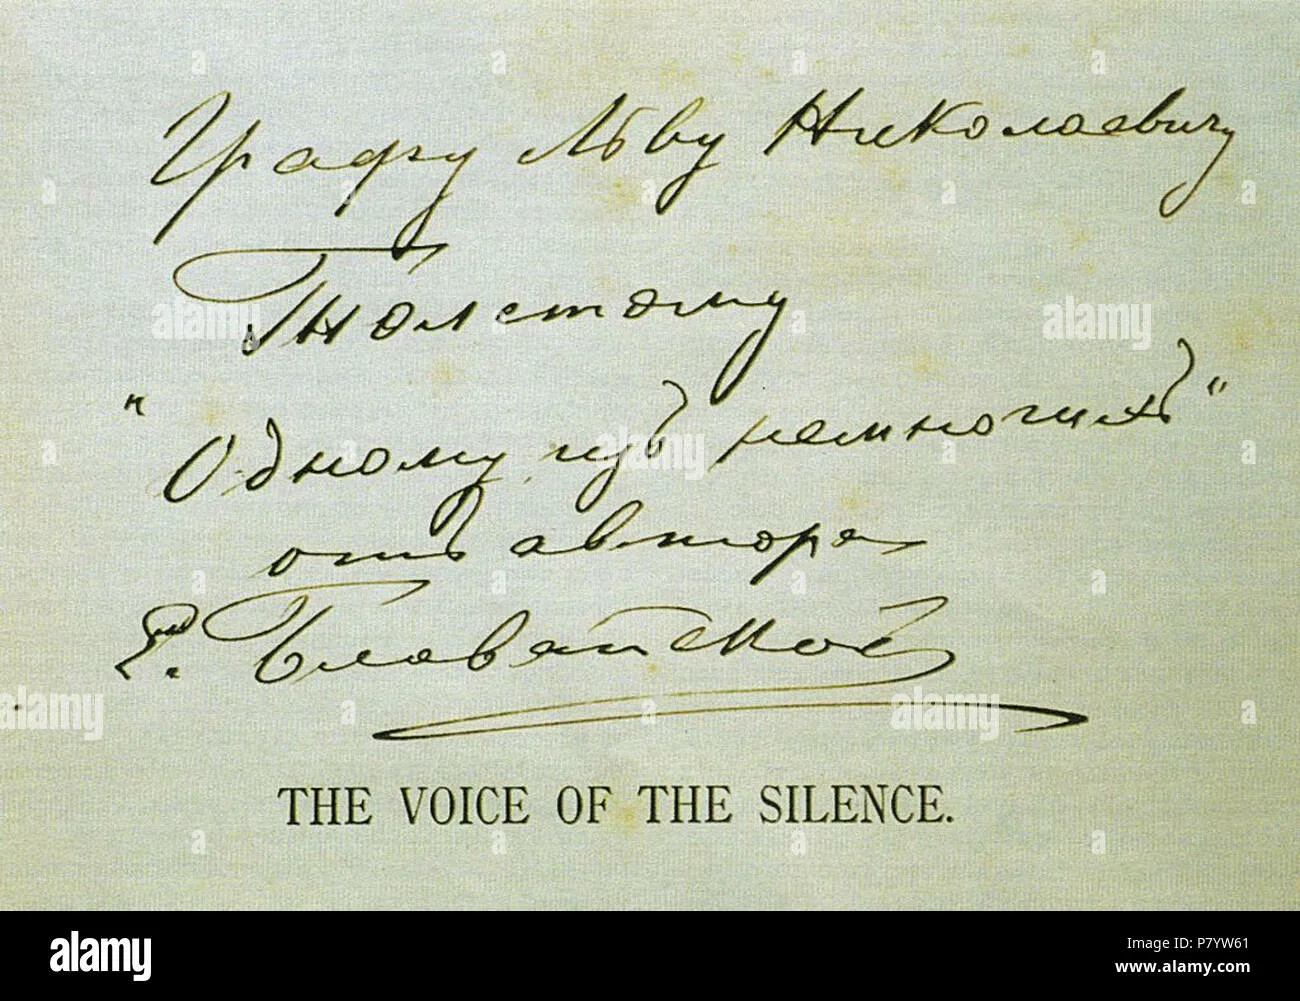 Графу Льву Николаевичу
Толстому
"Одному изъ немногихъ"
отъ автора
Е. Блаватской
THE VOICE OF THE SILENCE.
alamy
a
alamy stock photo
Image ID: P7YW61
www.alamy.com